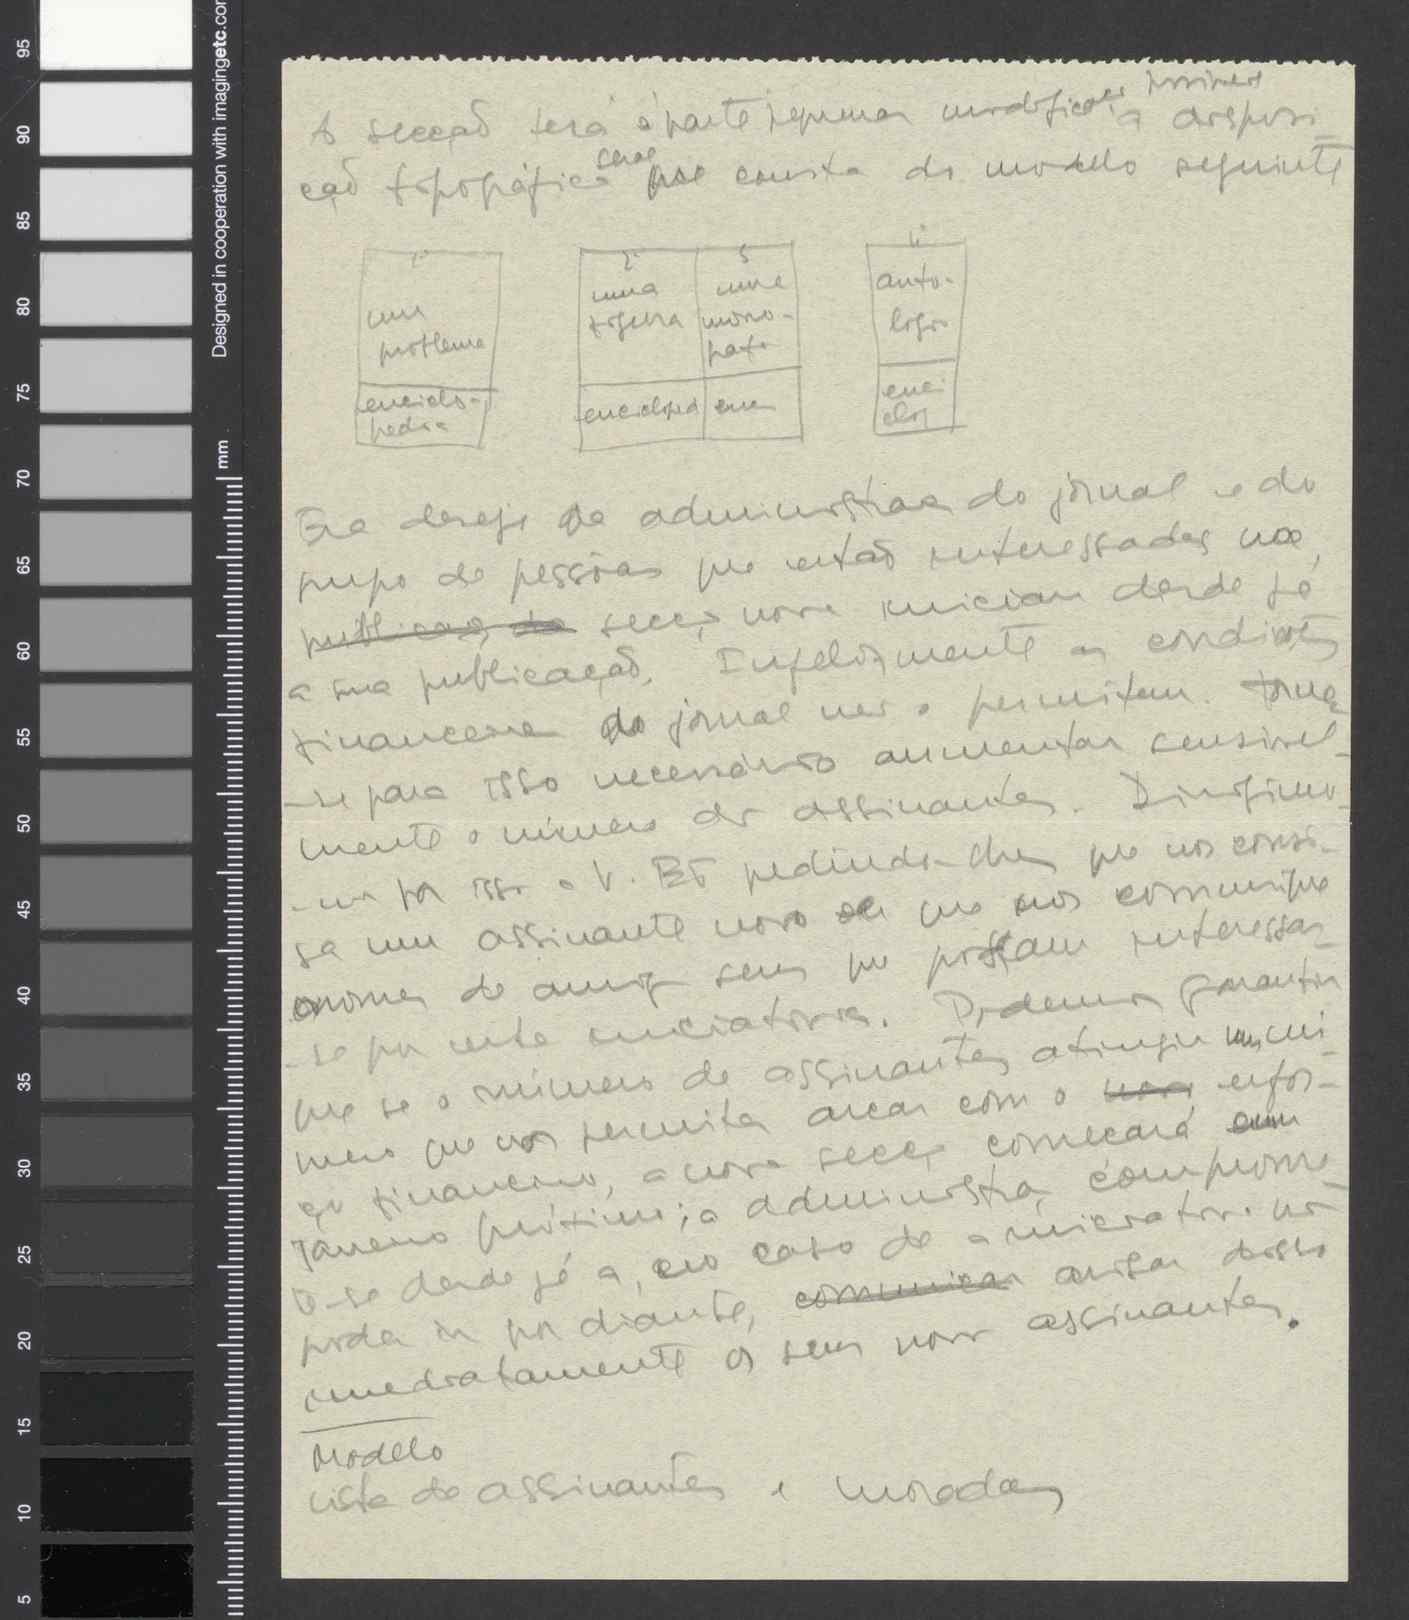 A secção terá à parte pequenas modificações possíveis a disposi-
ção topográfica geral que consta do modelo seguinte
1º
um
problema
enciclo-
pédia
2º
uma
figura
encicloped
3
uma
mono-
grafia
enc
4º
anto-
logia
enci
clop
Era desejo da administração do jornal e do
grupo de pessôas que estão interessadas na
publicação da secção nova iniciar desde já
a sua publicação. Infelizmente as condições
financeiras do jornal não o permitem. Torna
-se para isso necessário aumentar sensivel-
mente o número de assinantes. Dirigimo-
-nos por isso a V. Ex pedindo-lhes que nos consi-
ga um assinante novo ou que nos comunique
nomes de amigos seus que possam interessar-
-se por esta iniciativa. Podemos garantir
que se o número de assinantes atingir um mí
nimo que nos permita arcar com o novo esfor-
ço financeiro, a nova secção começará em
Janeiro próximo; a administração comprome-
te-se desde já a, no caso de a iniciativa não
poder ir por diante, comunicar avisar disso
imediatamente os seus novos assinantes.
Modelo
Lista de assinantes e moradas
95
90
85
80
75
70
65
60
55
50
45
40
35
30
25
20
15
10
5
mm
Designed in cooperation with imagingetc.com